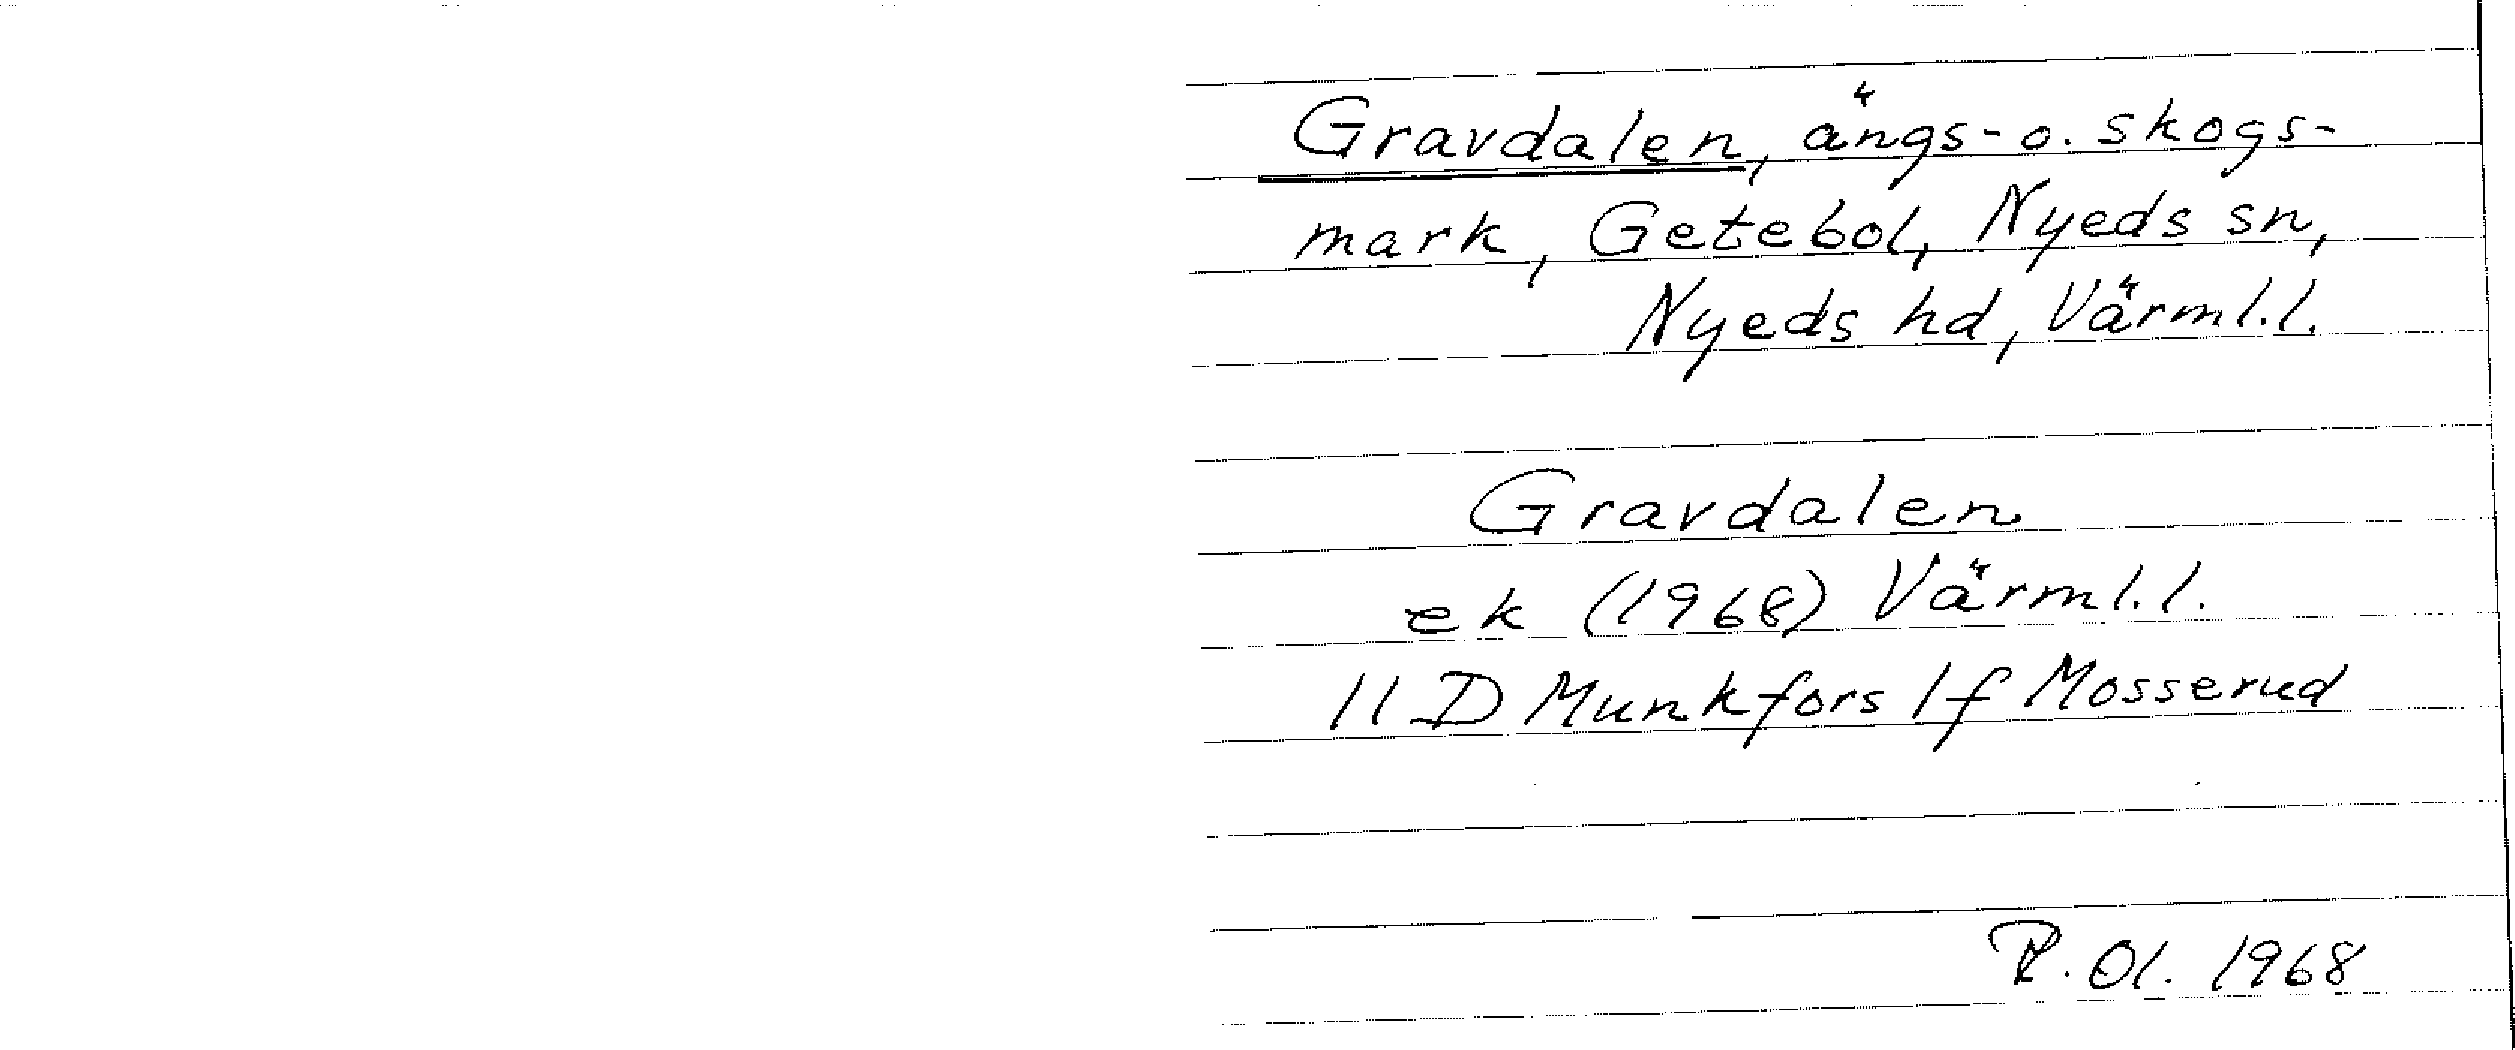 Gravdalen, ängs- o. skogs-
mark, Getebol, Nyeds sn,
Nyeds hd, Värml.l.
Gravdalen
ek (1968) Värml.l.
11 D Munkfors 1f Mosserud
P. Ol. 1968